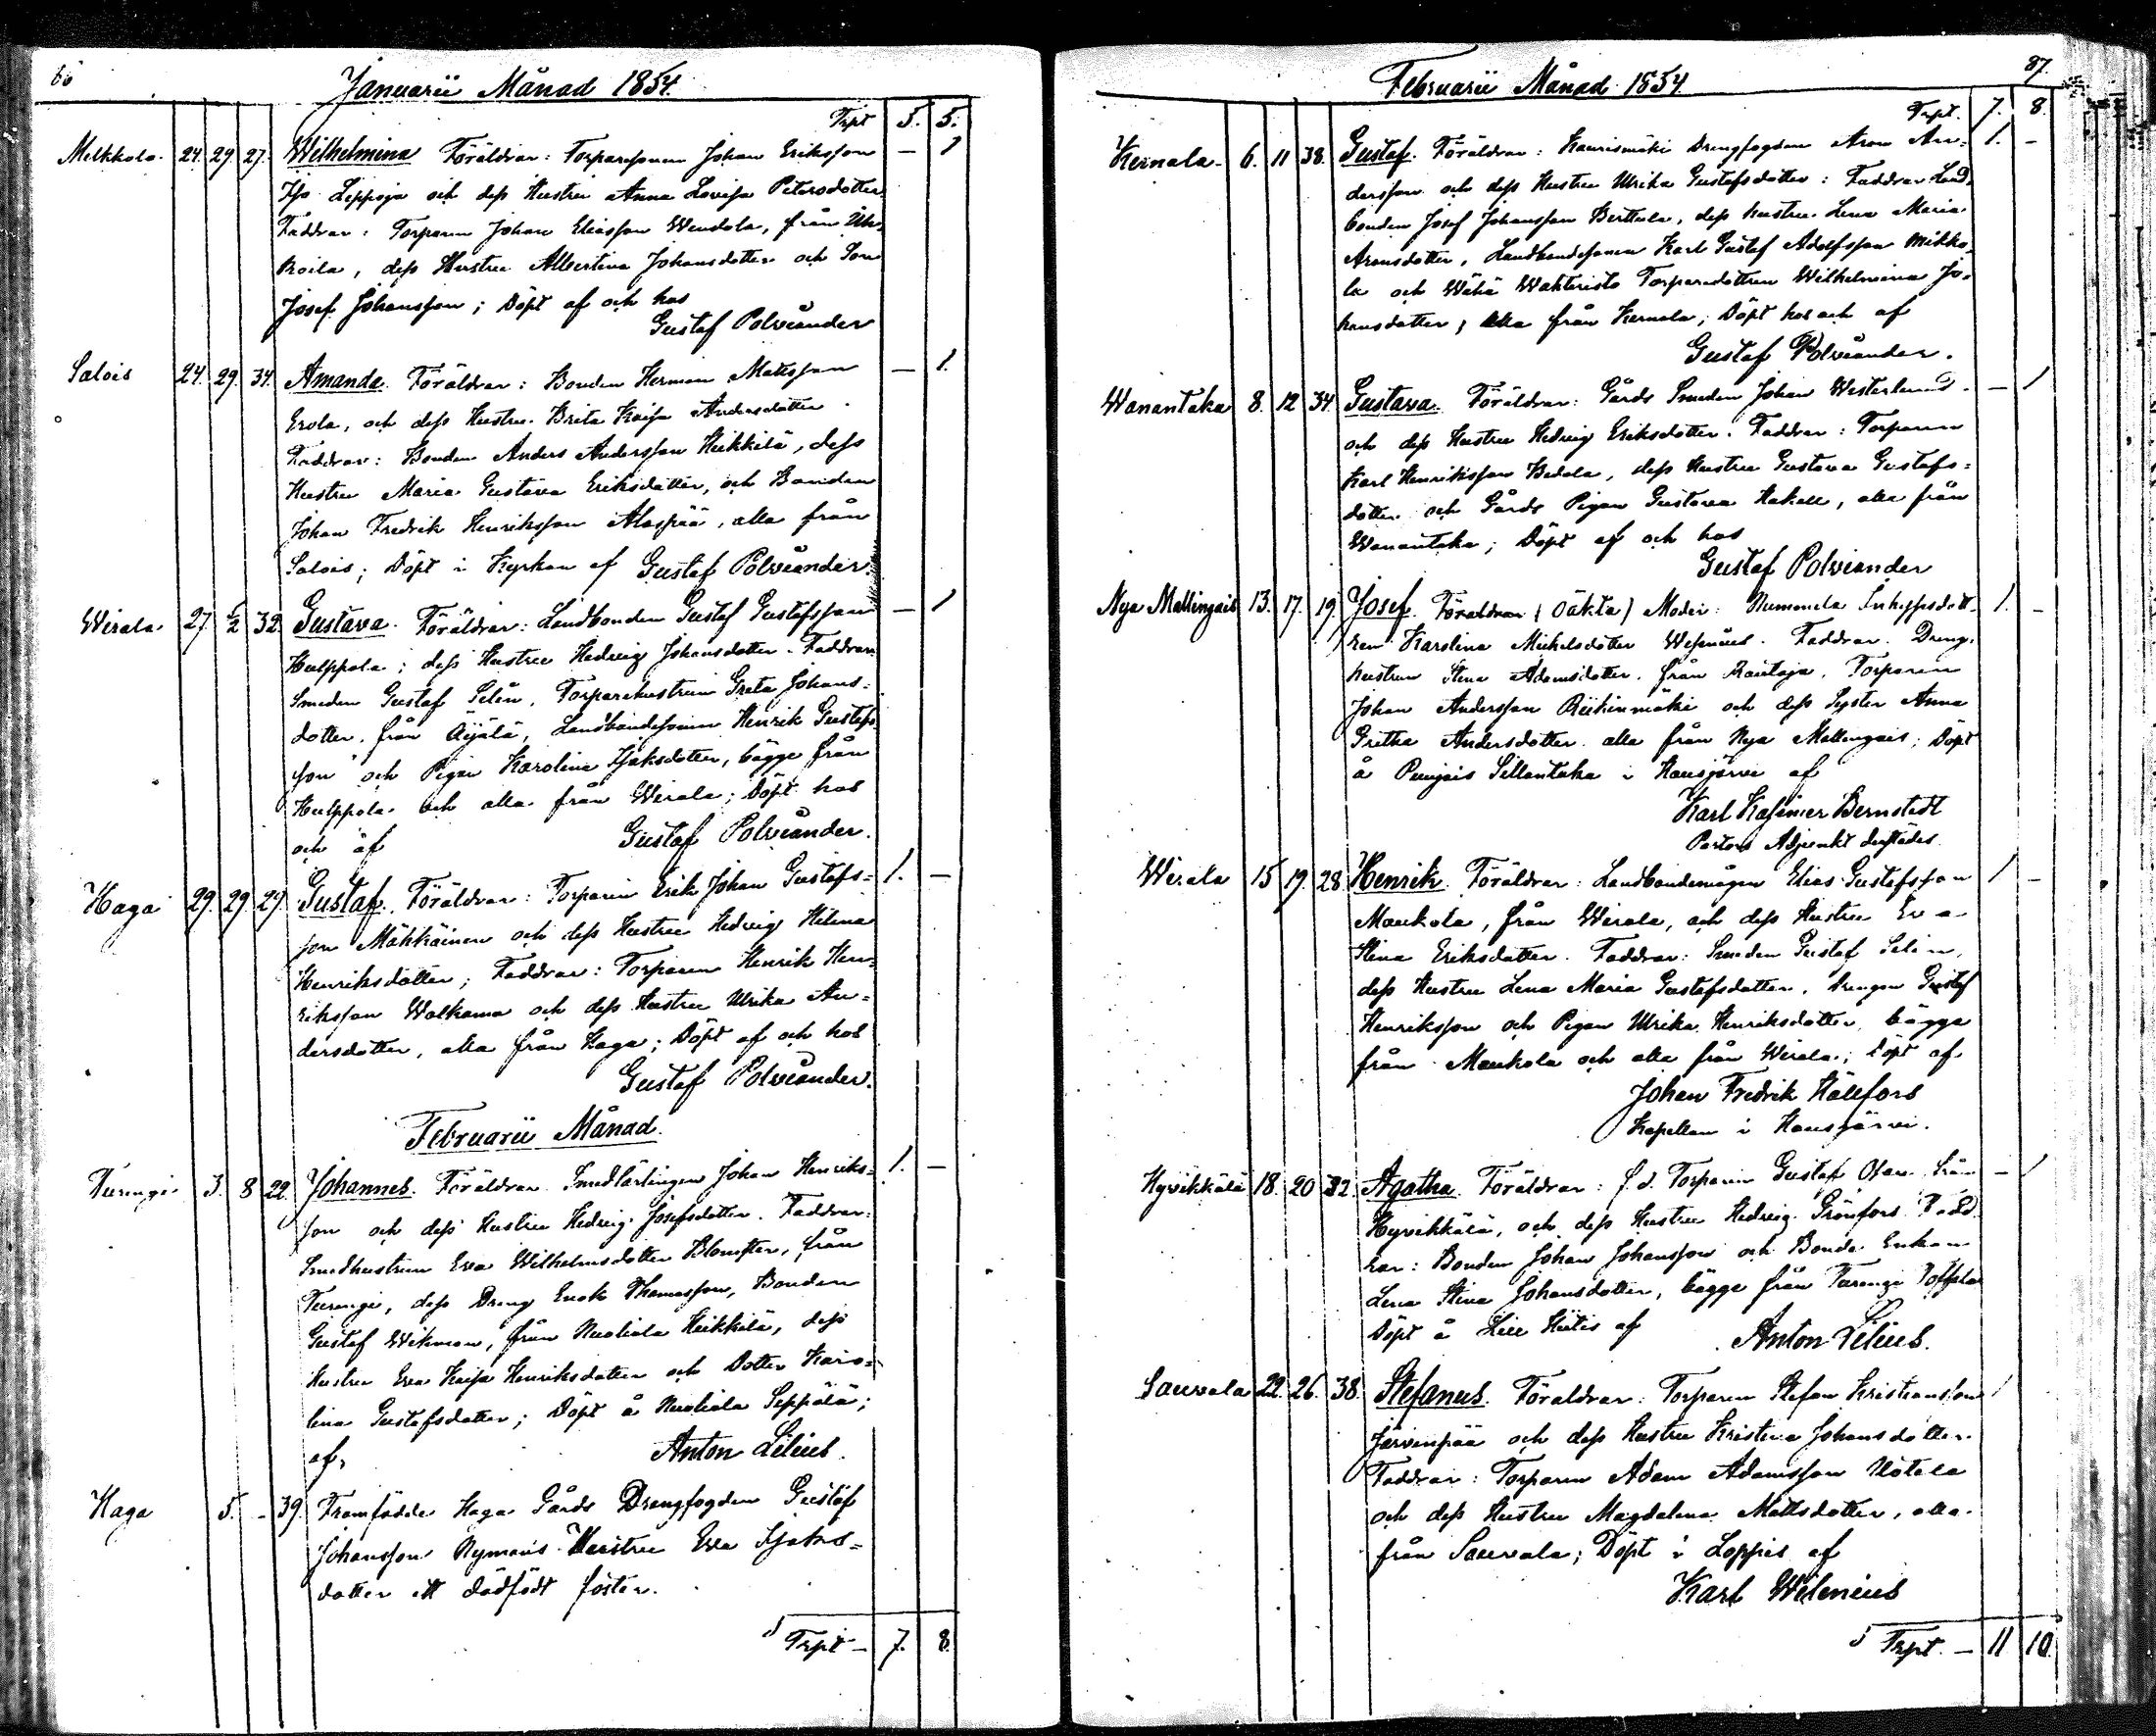 Januarii Månad 1854.
Trpt 5. 5.
24. 29. 27. Wilhelmina Föräldrar: Torparesonen Johan Eriksson — 1
och dess Hustru Anna Lovisa Petersdotter
Faddrar: Torparen Johan Eliasson från
dess Hustru Albertina Johansdotter och Son
Josef Johansson; Döpt af och hos
Gustaf Polviander
Salois 24. 29. 34. Amanda. Föräldrar: Bonden Herman Matsson — 1.
Erola, och dess Hustru Brita Kaisa Andersdotter.
Faddrar: Bonden Anders Andersson Heikkilä, dess
Hustru Maria Gustava Eriksdotter, och Bonden
Johan Fredrik Henriksson Alaspää, alla från
Salois; Döpt i Kyrkan af Gustaf Polviander.
Wirala 27. 1/2 32. Gustava. Föräldrar: Landbonden Gustaf Gustafsson — 1
Hulppola; dess Hustru Hedvig Johansdotter. Faddrar:
Smeden Gustaf Selin, Torparehustrun Greta Johans=
dotter, från Äijälä, Landbondesonen Henrik Gustafs
son och Pigan Karolina Isaksdotter, bägge från
Hulppola och alla från Wirala; Döpt hos
och af Gustaf Polviander.
Haga 29. 29. 29. Gustaf. Föräldrar: Torparen Erik Johan Gustafs= 1. —
son Mähkäinen och dess Hustru Hedvig Helena
Henriksdotter; Faddrar: Torparen Henrik Hen=
riksson Walkama och dess Hustru Ulrika An=
dersdotter, alla från Haga; Döpt af och hos
Gustaf Polviander.
Februarii Månad.
Turengi 3. 8 22. Johannes. Föräldrar Smedlärlingen Johan Henriks= 1. —
son och dess Hustru Hedvig Josefsdotter. Faddrar:
Smedhustrun Eva Wilhelmsdotter Blomster, från
Turengi, dess Dreng Enok Thomasson, Bonden
Gustaf Wikman, från Nuoliala Heikkilä, dess
Hustru Eva Kaisa Henriksdotter och Dotter Karo=
lina Gustafsdotter; Döpt å Nuoliala Seppälä;
af, Anton Lilius.
Haga 5. - 39. Framfödde Haga Gårds Drengfogden Gustaf
Johansson Nymans Hustru Eva Isaks=
dotter ett dödfödt foster.
Trpt — 7. 8.
87.
Februarii Månad 1854
Trpt. 7. 8.
Kernala 6. 11 38. Gustaf. Föräldrar: Kaurismäki Drengfogden Aron An= 1. -
dersson och dess Hustru Ulrika Gustafsdotter: Faddrar Land
bonden Josef Johansson Berttula, dess Hustru Lena Maria
Aronsdotter, Landbondesonen Karl Gustaf Adolfsson Mikko
la och Wähä Wahteristo Torparedottren Wilhelmina Jo=
hansdotter, alla från Kernala; Döpt hos och af
Gustaf Polviander.
Wanantaka 8. 12 34. Gustava. Föräldrar: Gårds Smeden Johan Westerlund — 1
och dess Hustru Hedvig Eriksdotter. Faddrar: Torparen
Karl Henriksson dess Hustru Gustava Gustafs=
dotter och Gårds Pigan Gustava alla från
Wanantaka; Döpt af och hos
Gustaf Polviander
Nya Mallingais 13. 17. 19. Josef. Föräldrar (Oäkta) Moder: Nummela Inhysesdott- 1. -
ren Karolina Michelsdotter Faddrar. Dreng.
hustrun Stina Adamsdotter från Torparen
Johan Andersson Riihinmäki och dess Syster Anna
Gretha Andersdotter alla från Nya Mallingais; Döpt
å Sillantaka i Hausjärvi af
Karl Kasimir Bernstedt
Pastors Adjunkt dersteds
Wirala 15 19. 28. Henrik. Föräldrar: Landbondemågen Elias Gustafsson 1 -
Maukola, från Wirala, och dess Hustru Eva
Stina Eriksdotter. Faddrar: Smeden Gustaf Selin,
dess Hustru Lena Maria Gustafsdotter, Drengen Gustaf
Henriksson och Pigan Ulrika Henriksdotter bägge
från Maukola och alla från Wirala; Döpt af
Johan Fredrik Hällfors
Kapellan i Hausjärvi.
Hyvikkälä 18. 20 32. Agatha. Föräldrar: f.d. Torparen Gustaf från — 1
Hyvikkälä, och dess Hustru Hedvig Grönfors. Fadd
rar: Bonden Johan Johansson och Bonde Enkan
Lena Stina Johansdotter, bägge från Turengi
Döpt å af Anton Lilius.
Sauvala 22. 26. 38. Stefanus. Föräldrar: Torparen Stefan Kristiansson 1
Järvenpää och dess Hustru Kristina Johansdotter.
Faddrar: Torparen Adam Adamsson Uotila
och dess Hustru Magdalena Mattsdotter, alla
från Sauvala; Döpt i Loppis af
Karl Wilenius
Trpt. — 11 10.